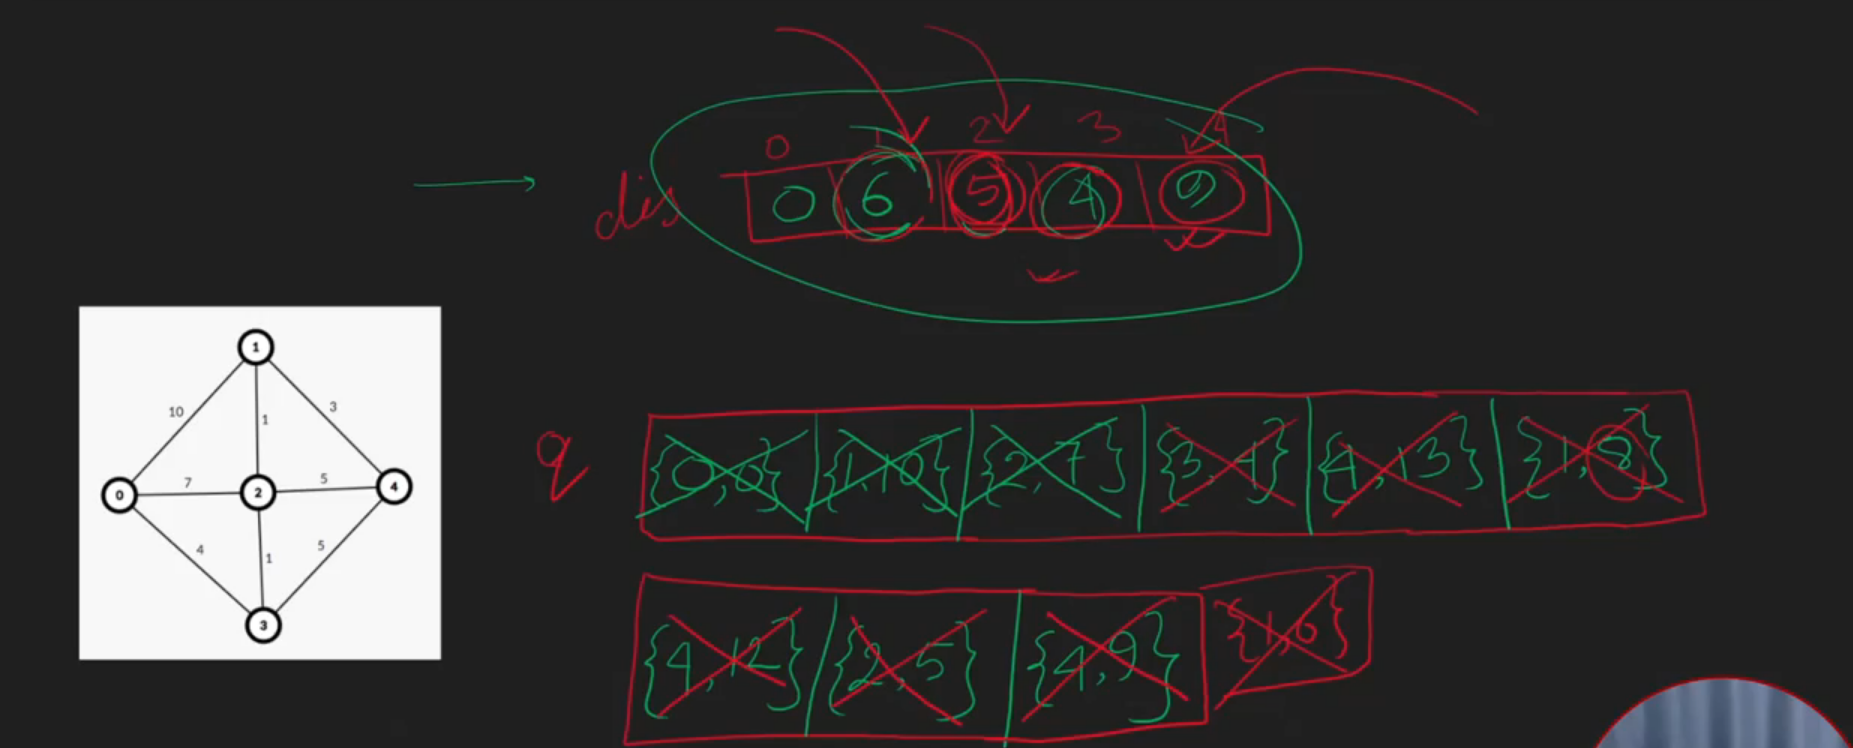 0 1 2 3 4
dis 0 6 5 4 9
1
10 1 3
0 7 2 5 4
4 1 5
3
q {0,0} {1,10} {2,7} {3,4} {4,13} {1,8}
{4,12} {2,5} {4,9} {1,6}